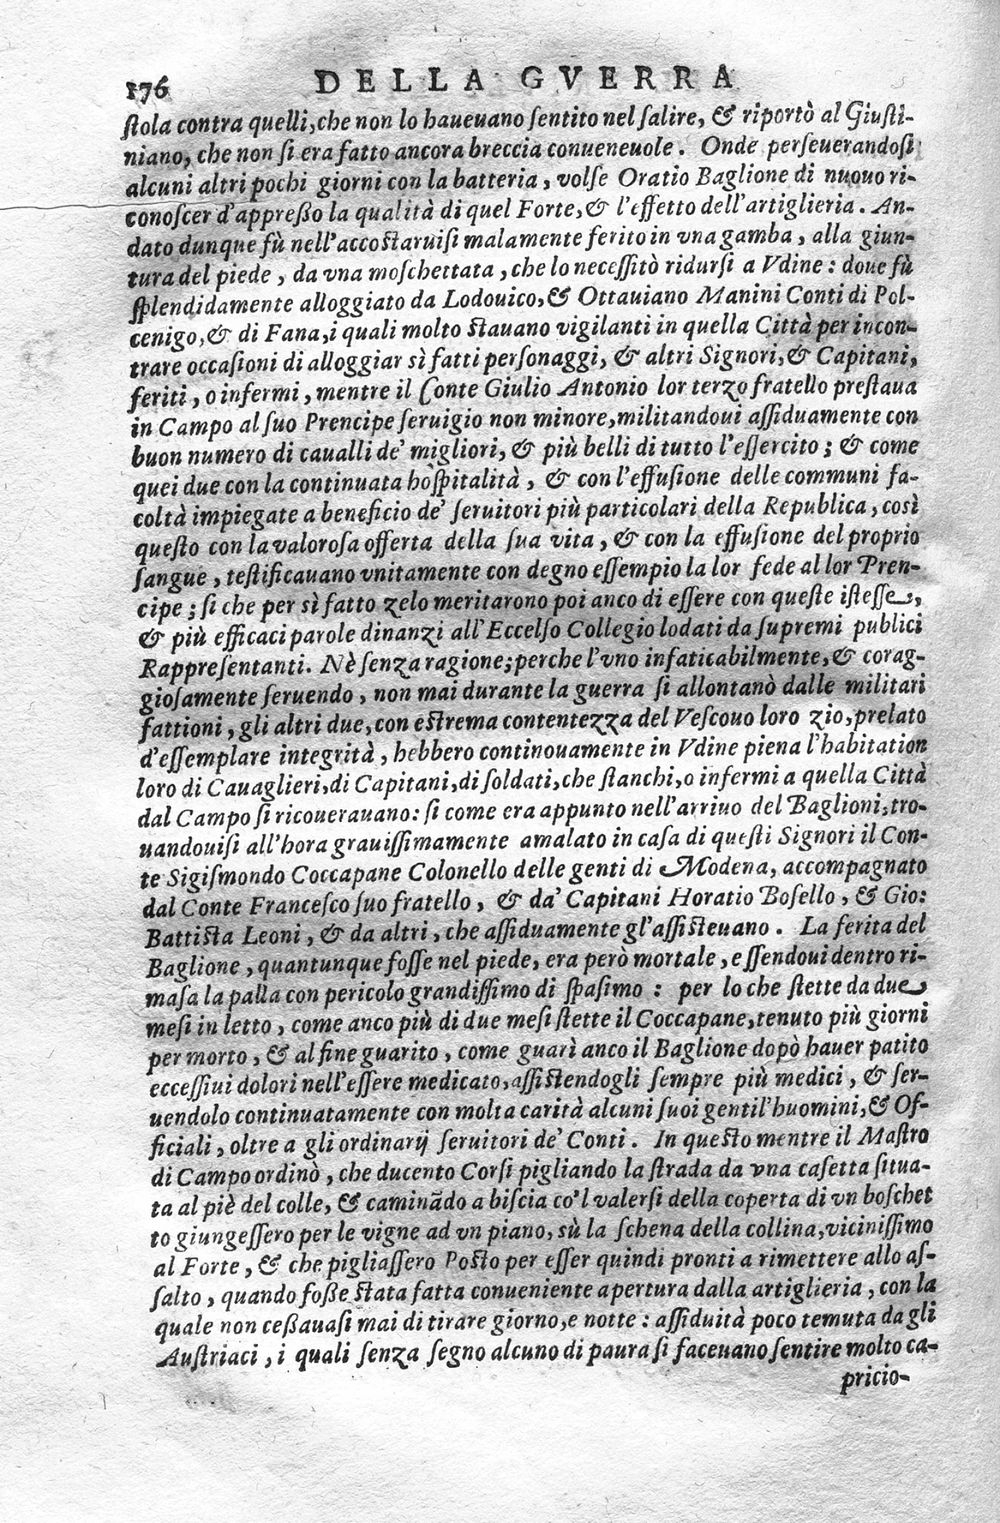 176 DELLA GVERRA
ſtola contra quelli, che non lo haueuano ſentito nel ſalire, & riportò al Giuſti-
niano, che non ſi era fatto ancora breccia conueneuole. Onde perſeuerandoſi
alcuni altri pochi giorni con la batteria, volſe Oratio Baglione di nuouo ri-
conoſcer d'appreßo la qualità di quel Forte, & l'effetto dell'artiglieria. An-
dato dunque fù nell'accoſtaruiſi malamente ferito in vna gamba, alla giun-
tura del piede, da vna moſchettata, che lo neceſſitò ridurſi a Vdine: doue fù
ſplendidamente alloggiato da Lodouico, & Ottauiano Manini Conti di Pol-
cenigo, & di Fana, i quali molto ſtauano vigilanti in quella Città per incon-
trare occaſioni di alloggiar sì fatti perſonaggi, & altri Signori, & Capitani,
feriti, o infermi, mentre il Conte Giulio Antonio lor terzo fratello preſtaua
in Campo al ſuo Prencipe ſeruigio non minore, militandoui aſſiduamente con
buon numero di caualli de' migliori, & più belli di tutto l'eſſercito; & come
quei due con la continuata hòſpitalità, & con l'effuſione delle communi fa-
coltà impiegate a beneficio de' ſeruitori più particolari della Republica, così
queſto con la valoroſa offerta della ſua vita, & con la effuſione del proprio
ſangue, teſtificauano vnitamente con degno eſſempio la lor fede al lor Pren-
cipe; ſi che per sì fatto zelo meritarono poi anco di eſſere con queſte iſteſſe,
& più efficaci parole dinanzi all'Eccelſo Collegio lodati da ſupremi publici
Rappreſentanti. Nè ſenza ragione; perche l'vno infaticabilmente, & corag-
gioſamente ſeruendo, non mai durante la guerra ſi allontanò dalle militari
fattioni, gli altri due, con eſtrema contentezza del Veſcouo loro zio, prelato
d'eſſemplare integrità, hebbero continouamente in Vdine piena l'habitation
loro di Cauaglieri, di Capitani, di ſoldati, che ſtanchi, o infermi a quella Città
dal Campo ſi ricouerauano: ſi come era appunto nell'arriuo del Baglioni, tro-
uandouiſi all'hora grauiſſimamente amalato in caſa di queſti Signori il Con-
te Sigiſmondo Coccapane Colonello delle genti di Modena, accompagnato
dal Conte Franceſco ſuo fratello, & da' Capitani Horatio Boſello, & Gio:
Battiſta Leoni, & da altri, che aſſiduamente gl'aſſiſteuano. La ferita del
Baglione, quantunque foſſe nel piede, era però mortale, eſſendoui dentro ri-
maſa la palla con pericolo grandiſſimo di ſpaſimo: per lo che ſtette da due
meſi in letto, come anco più di due meſi ſtette il Coccapane, tenuto più giorni
per morto, & al fine guarito, come guarì anco il Baglione dopò hauer patito
ecceſſiui dolori nell'eſſere medicato, aſſiſtendogli ſempre più medici, & ſer-
uendolo continuatamente con molta carità alcuni ſuoi gentil'huomini, & Of-
ficiali, oltre a gli ordinarij ſeruitori de' Conti. In queſto mentre il Maſtro
di Campo ordinò, che ducento Corſi pigliando la ſtrada da vna caſetta ſitua-
ta al piè del colle, & caminãdo a biſcia co'l valerſi della coperta di vn boſchet
to giungeſſero per le vigne ad vn piano, sù la ſchena della collina, viciniſſimo
al Forte, & che pigliaſſero Poſto per eſſer quindi pronti a rimettere allo aſ-
ſalto, quando foße ſtata fatta conueniente apertura dalla artiglieria, con la
quale non ceßauaſi mai di tirare giorno, e notte: aſſiduità poco temuta da gli
Auſtriaci, i quali ſenza ſegno alcuno di paura ſi faceuano ſentire molto ca-
pricio-